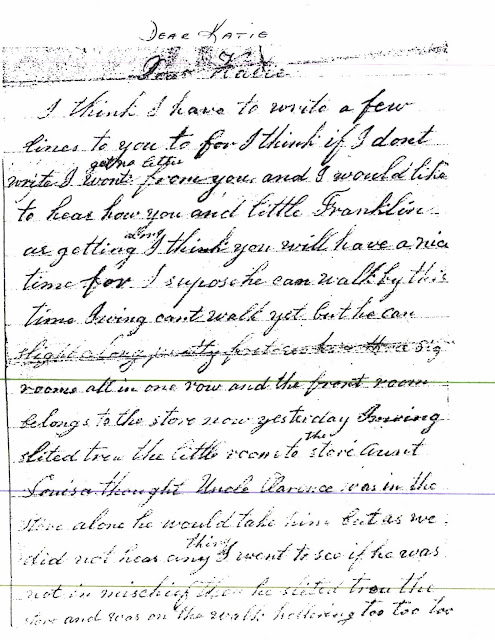 DEAR KATIE
Dear Katie
I think I have to write a few
lines to you to for I think if I dont
get no letter
write I wont from you and I would like
to hear how you and little Franklin
along
as getting I think you will have a nice
time for I supose he can walk by this
time Irwing cant walk yet but he can
slight along pretty fast we have three big
rooms all in one row and the front room
belongs to the store now yesterday Irwing
the
slited treu the little room to store Aunt
Louisa thought Uncle Clarence was in the
store alone he would take him but as we
thing
did not hear any I went to see if he was
not in mischief then he slited treu the
store and was on the walk hollering too too too